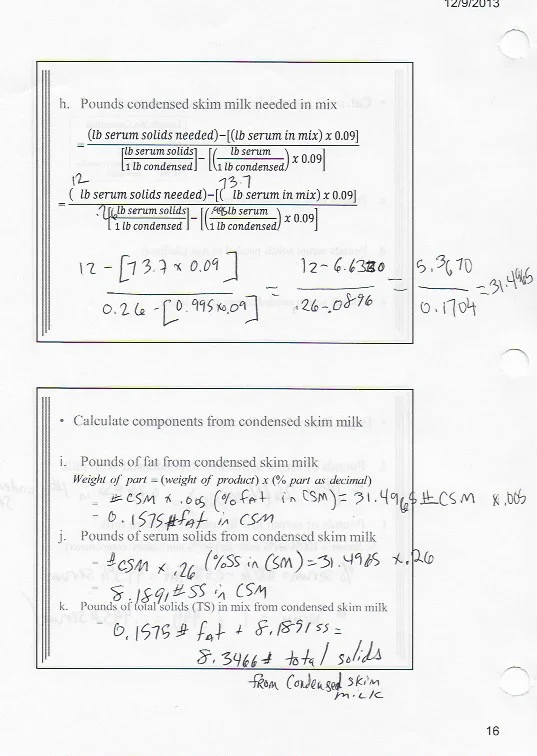 12/9/2013
h. Pounds condensed skim milk needed in mix
= (lb serum solids needed)−[(lb serum in mix) x 0.09]
[lb serum solids / 1 lb condensed]−[(lb serum / 1 lb condensed) x 0.09]
12 73.7
= ( lb serum solids needed)−[( lb serum in mix) x 0.09]
[.26 lb serum solids / 1 lb condensed]−[(.995 lb serum / 1 lb condensed) x 0.09]
12 - [73.7 x 0.09] = 12 - 6.6330 = 5.3670 = 31.4965
0.26 - [0.995 x 0.09] .26 - .0896 0.1704
• Calculate components from condensed skim milk
i. Pounds of fat from condensed skim milk
Weight of part = (weight of product) x (% part as decimal)
= #CSM x .005 (% fat in CSM) = 31.4965 # CSM x .005
= 0.1575 # fat in CSM
j. Pounds of serum solids from condensed skim milk
= #CSM x .26 (% SS in CSM) = 31.4965 x .26
= 8.1891 # SS in CSM
k. Pounds of total solids (TS) in mix from condensed skim milk
0.1575 # fat + 8.1891 ss =
8.3466 # total solids
from Condensed skim
milk
16